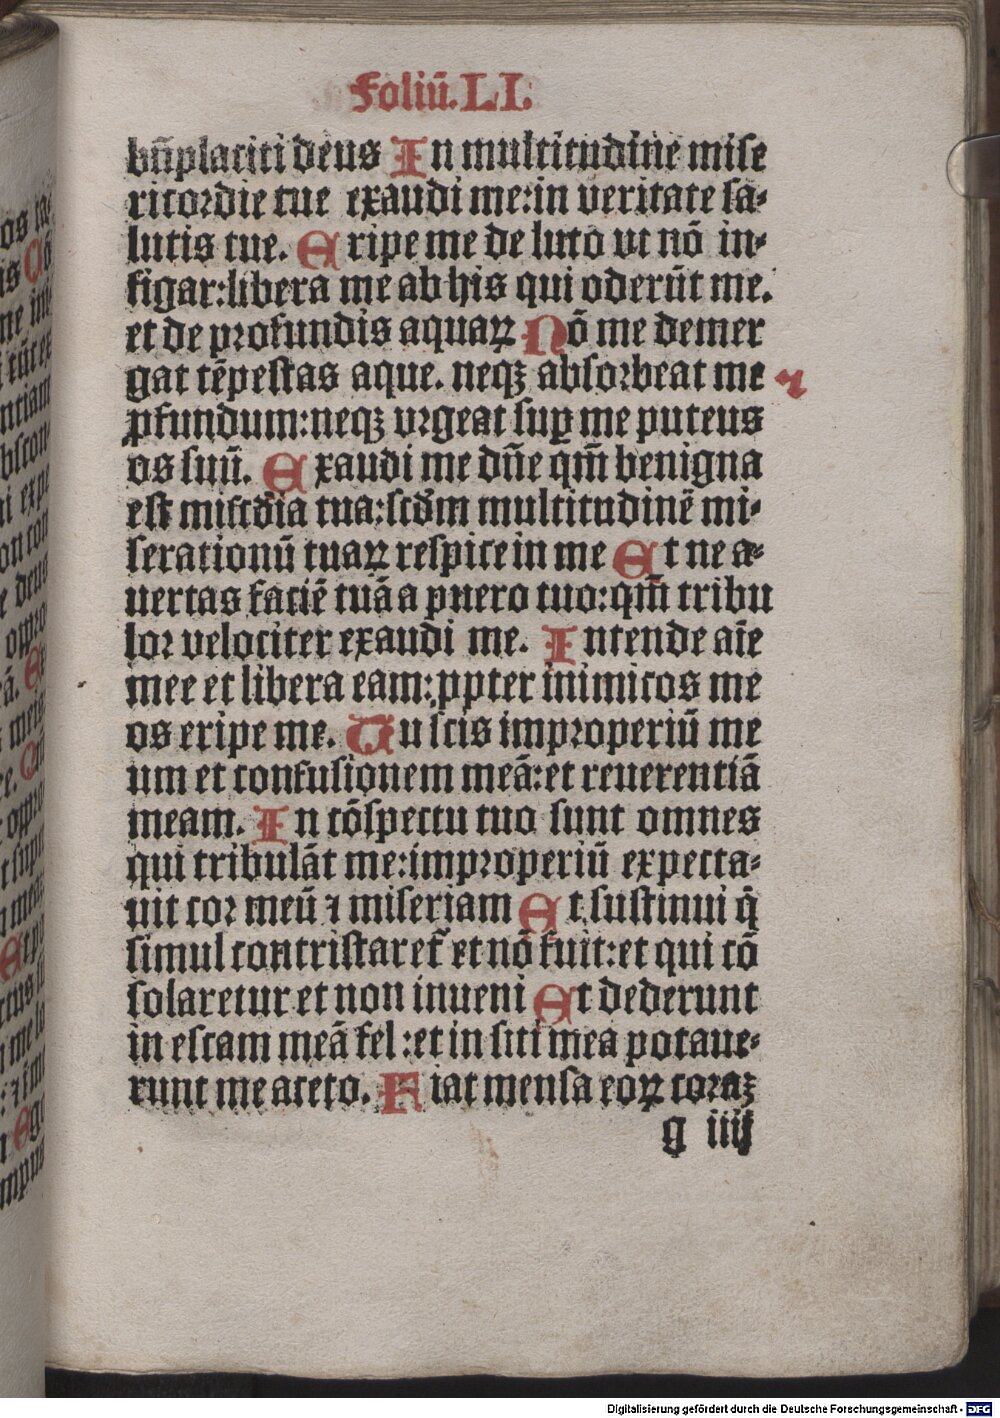 Foliū. LI.
bn̄placiti deus In multitudine mise
ricordie tue exaudi me:in veritate sa⸗
lutis tue. Eripe me de luto vt nō in⸗
figar:libera me ab his qui oderūt me.
et de profundis aquaꝝ Nō me demer
gat tēpestas aque. neqꝫ absorbeat me
ꝓfundum:neqꝫ vrgeat suꝑ me puteus
os suū. Exaudi me dn̄e qm̄ benigna
est mi̅cdia tua:scdm multitudinē mi⸗
serationū tuaꝝ respice in me Et ne a⸗
uertas faciē tuā a puero tuo:qm̄ tribu
lor velociter exaudi me. Intende aīe
mee et libera eam:ꝓpter inimicos me
os eripe me. Tu scis improperiū me
um et confusionem meā:et reuerentiā
meam. In cōspectu tuo sunt omnes
qui tribulāt me:improperiū expecta⸗
uit cor meū ⁊ miseriam Et sustinui q̄
simul contristaret̄ et nō fuit:et qui cō
solaretur et non inueni Et dederunt
in escam meā fel:et in siti mea potaue⸗
runt me aceto. Fiat mensa eoꝝ coraꝫ
g iiij
Digitalisierung gefördert durch die Deutsche Forschungsgemeinschaft - DFG